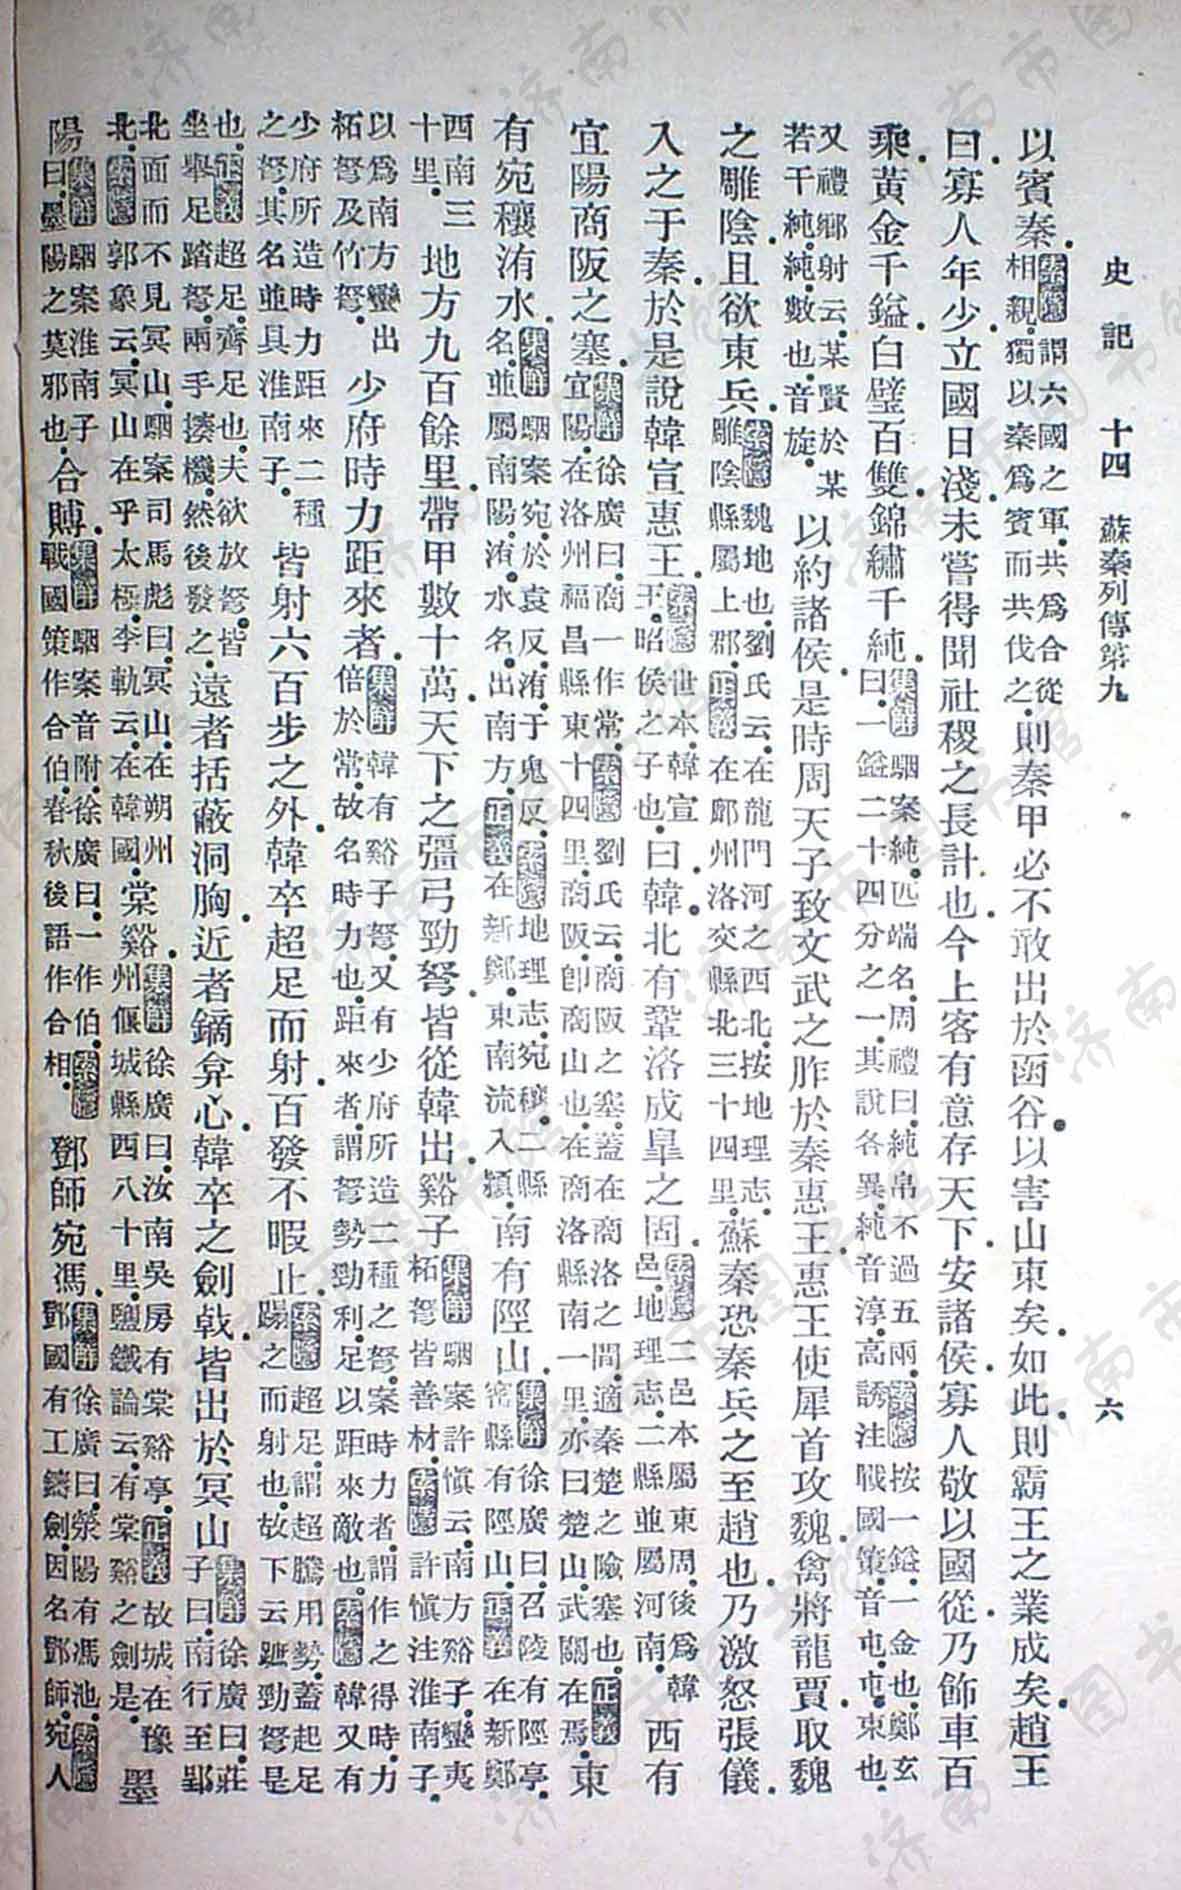 史記 十四 蘇秦列傳第九 六
以賓秦。索隱謂六國之軍。共爲合從相親。獨以秦爲賓而共伐之。則秦甲必不敢出於函谷。以害山東矣。如此。則霸王之業成矣。趙王
曰。寡人年少。立國日淺。未嘗得聞社稷之長計也。今上客有意存天下。安諸侯。寡人敬以國從。乃飾車百
乘。黃金千鎰。白璧百雙。錦繡千純。集解駰案純。匹端名。周禮曰。純帛不過五兩。索隱按一鎰。一金也。鄭玄曰。一鎰二十四分之一。其說各異。純音淳。高誘注戰國策。音屯。屯。束也。
又禮鄉射云。某賢於某若干純。純。數也。音旋。以約諸侯。是時周天子致文武之胙於秦惠王。惠王使犀首攻魏。禽將龍賈。取魏
之雕陰。且欲東兵。索隱魏地也。劉氏云。在龍門河之西北。按地理志。雕陰縣屬上郡。正義在鄜州洛交縣北三十四里。蘇秦恐秦兵之至趙也。乃激怒張儀。
入之于秦。於是說韓宣惠王。索隱世本。韓宣王。昭侯之子也。曰。韓北有鞏洛成皐之固。索隱二邑本屬東周。後爲韓邑。地理志。二縣並屬河南。西有
宜陽商阪之塞。集解徐廣曰。商一作常。索隱劉氏云。商阪之塞。蓋在商洛之間。適秦楚之險塞也。正義宜陽。在洛州福昌縣東十四里。商阪。卽商山也。在商洛縣南一里。亦曰楚山。武關在焉。東
有宛穰洧水。集解駰案宛於袁反。洧于鬼反。索隱地理志。宛穰二縣名。並屬南陽。洧水名。出南方。正義在新鄭東南流入潁。南有陘山。集解徐廣曰。召陵有陘亭。密縣有陘山。正義在新鄭
西南三十里。地方九百餘里。帶甲數十萬。天下之彊弓勁弩。皆從韓出。谿子集解駰案許愼云。南方谿子蠻夷柘弩皆善材。索隱許愼注淮南子。
以爲南方蠻出柘弩及竹弩。少府時力距來者。集解韓有谿子弩。又有少府所造二種之弩。案時力者。謂作之得時。力倍於常。故名時力也。距來者。謂弩勢勁利。足以距來敵也。索隱韓又有
少府所造時力距來二種之弩。其名並具淮南子。皆射六百步之外。韓卒超足而射。百發不暇止。索隱超足。謂超騰用勢。蓋起足蹋之而射也。故下云蹠勁弩是
也。正義超足。齊足也。夫欲放弩。皆坐舉足踏弩。兩手搽機。然後發之。遠者括蔽洞胸。近者鏑弇心。韓卒之劍戟。皆出於冥山集解徐廣曰。莊子曰。南行至郢
北面而不見冥山。駰案司馬彪曰。冥山。在朔州北。索隱郭象云。冥山在乎太極。李軌云。在韓國。棠谿。集解徐廣曰。汝南吳房有棠谿亭。正義故城在豫州偃城縣西八十里。鹽鐵論云。有棠谿之劍是。墨
陽集解駰案淮南子曰。墨陽之莫邪也。合賻。集解駰案音附。徐廣曰。一作伯。索隱戰國策作合伯。春秋後語作合相。鄧師宛馮。集解徐廣曰。滎陽有馮池。索隱鄧國有工鑄劍。因名鄧師。宛人